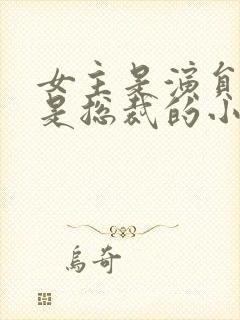 女主是演员
是总裁的小
乌奇